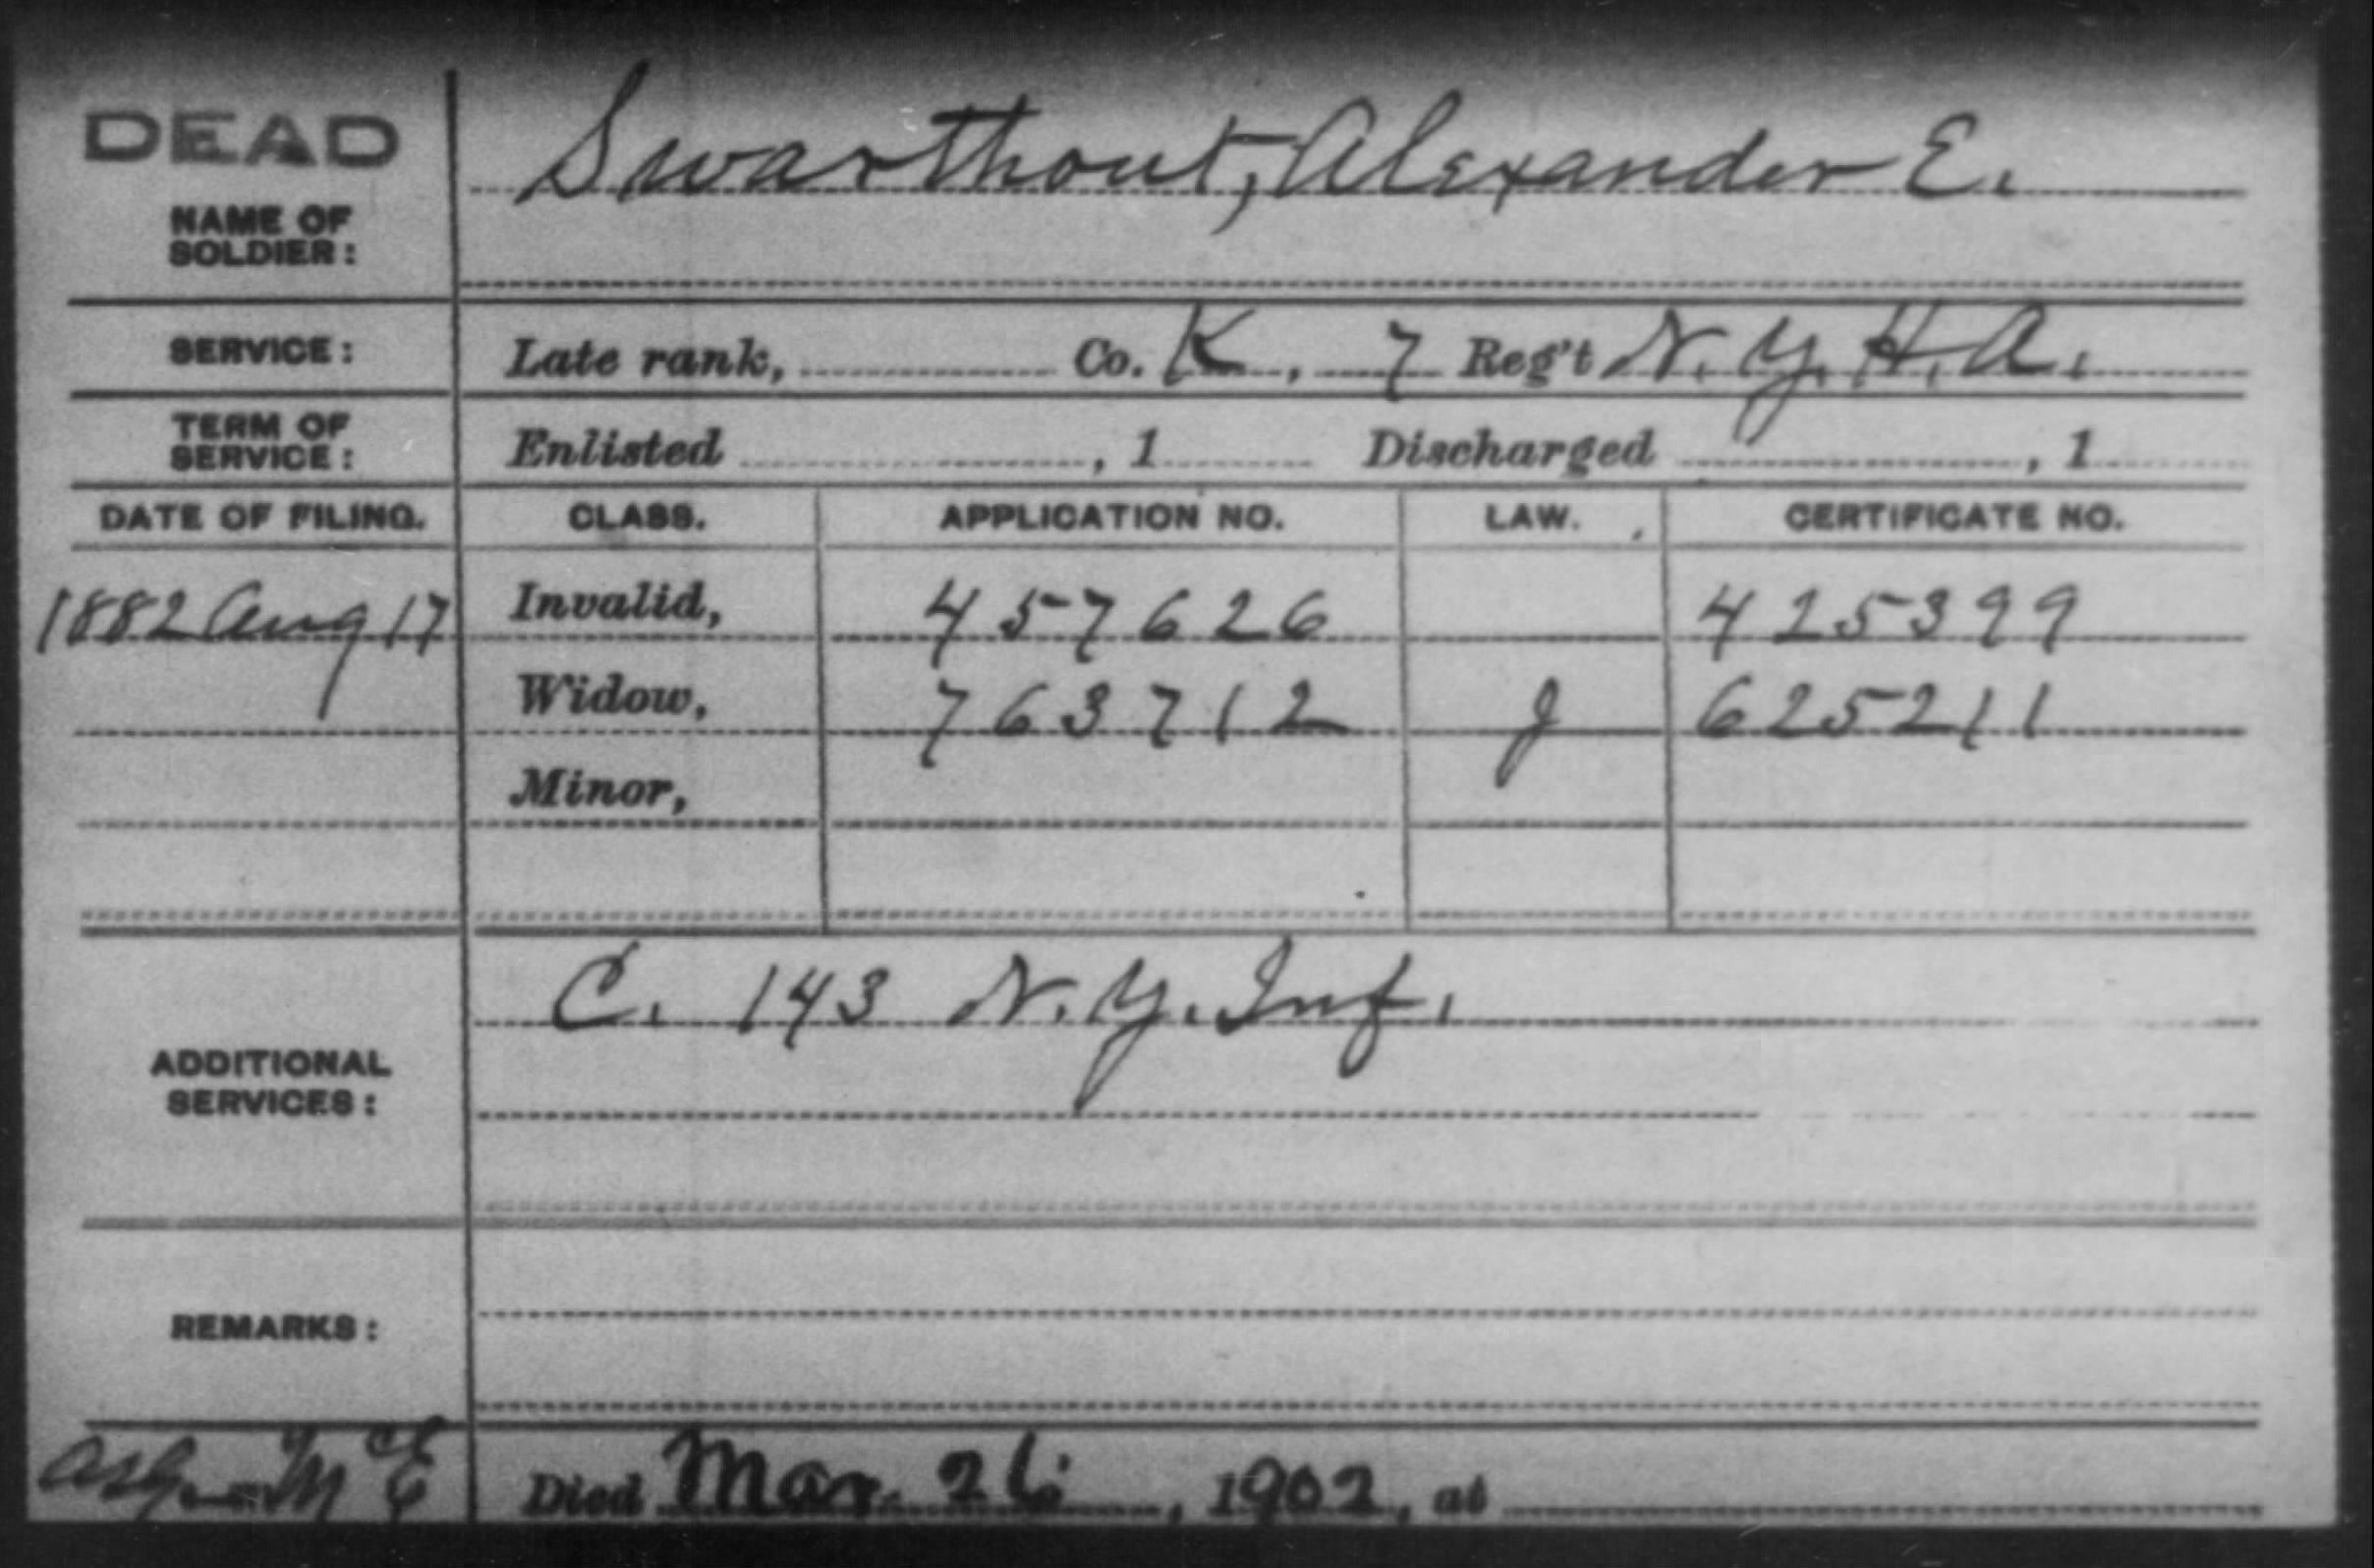 DEAD
Swarthout, Alexander E.
NAME OF
SOLDIER:
SERVICE: Late rank, Co. K, 7 Reg't N.Y.H.A.
TERM OF
SERVICE: Enlisted , 1 Discharged , 1
DATE OF FILING. CLASS. APPLICATION NO. LAW. CERTIFICATE NO.
1882 Aug 17 Invalid, 457626 425399
Widow, 763712 J 625211
Minor,
C. 143 N.Y. Inf.
ADDITIONAL
SERVICES:
REMARKS:
Died Mar. 26, 1902, at